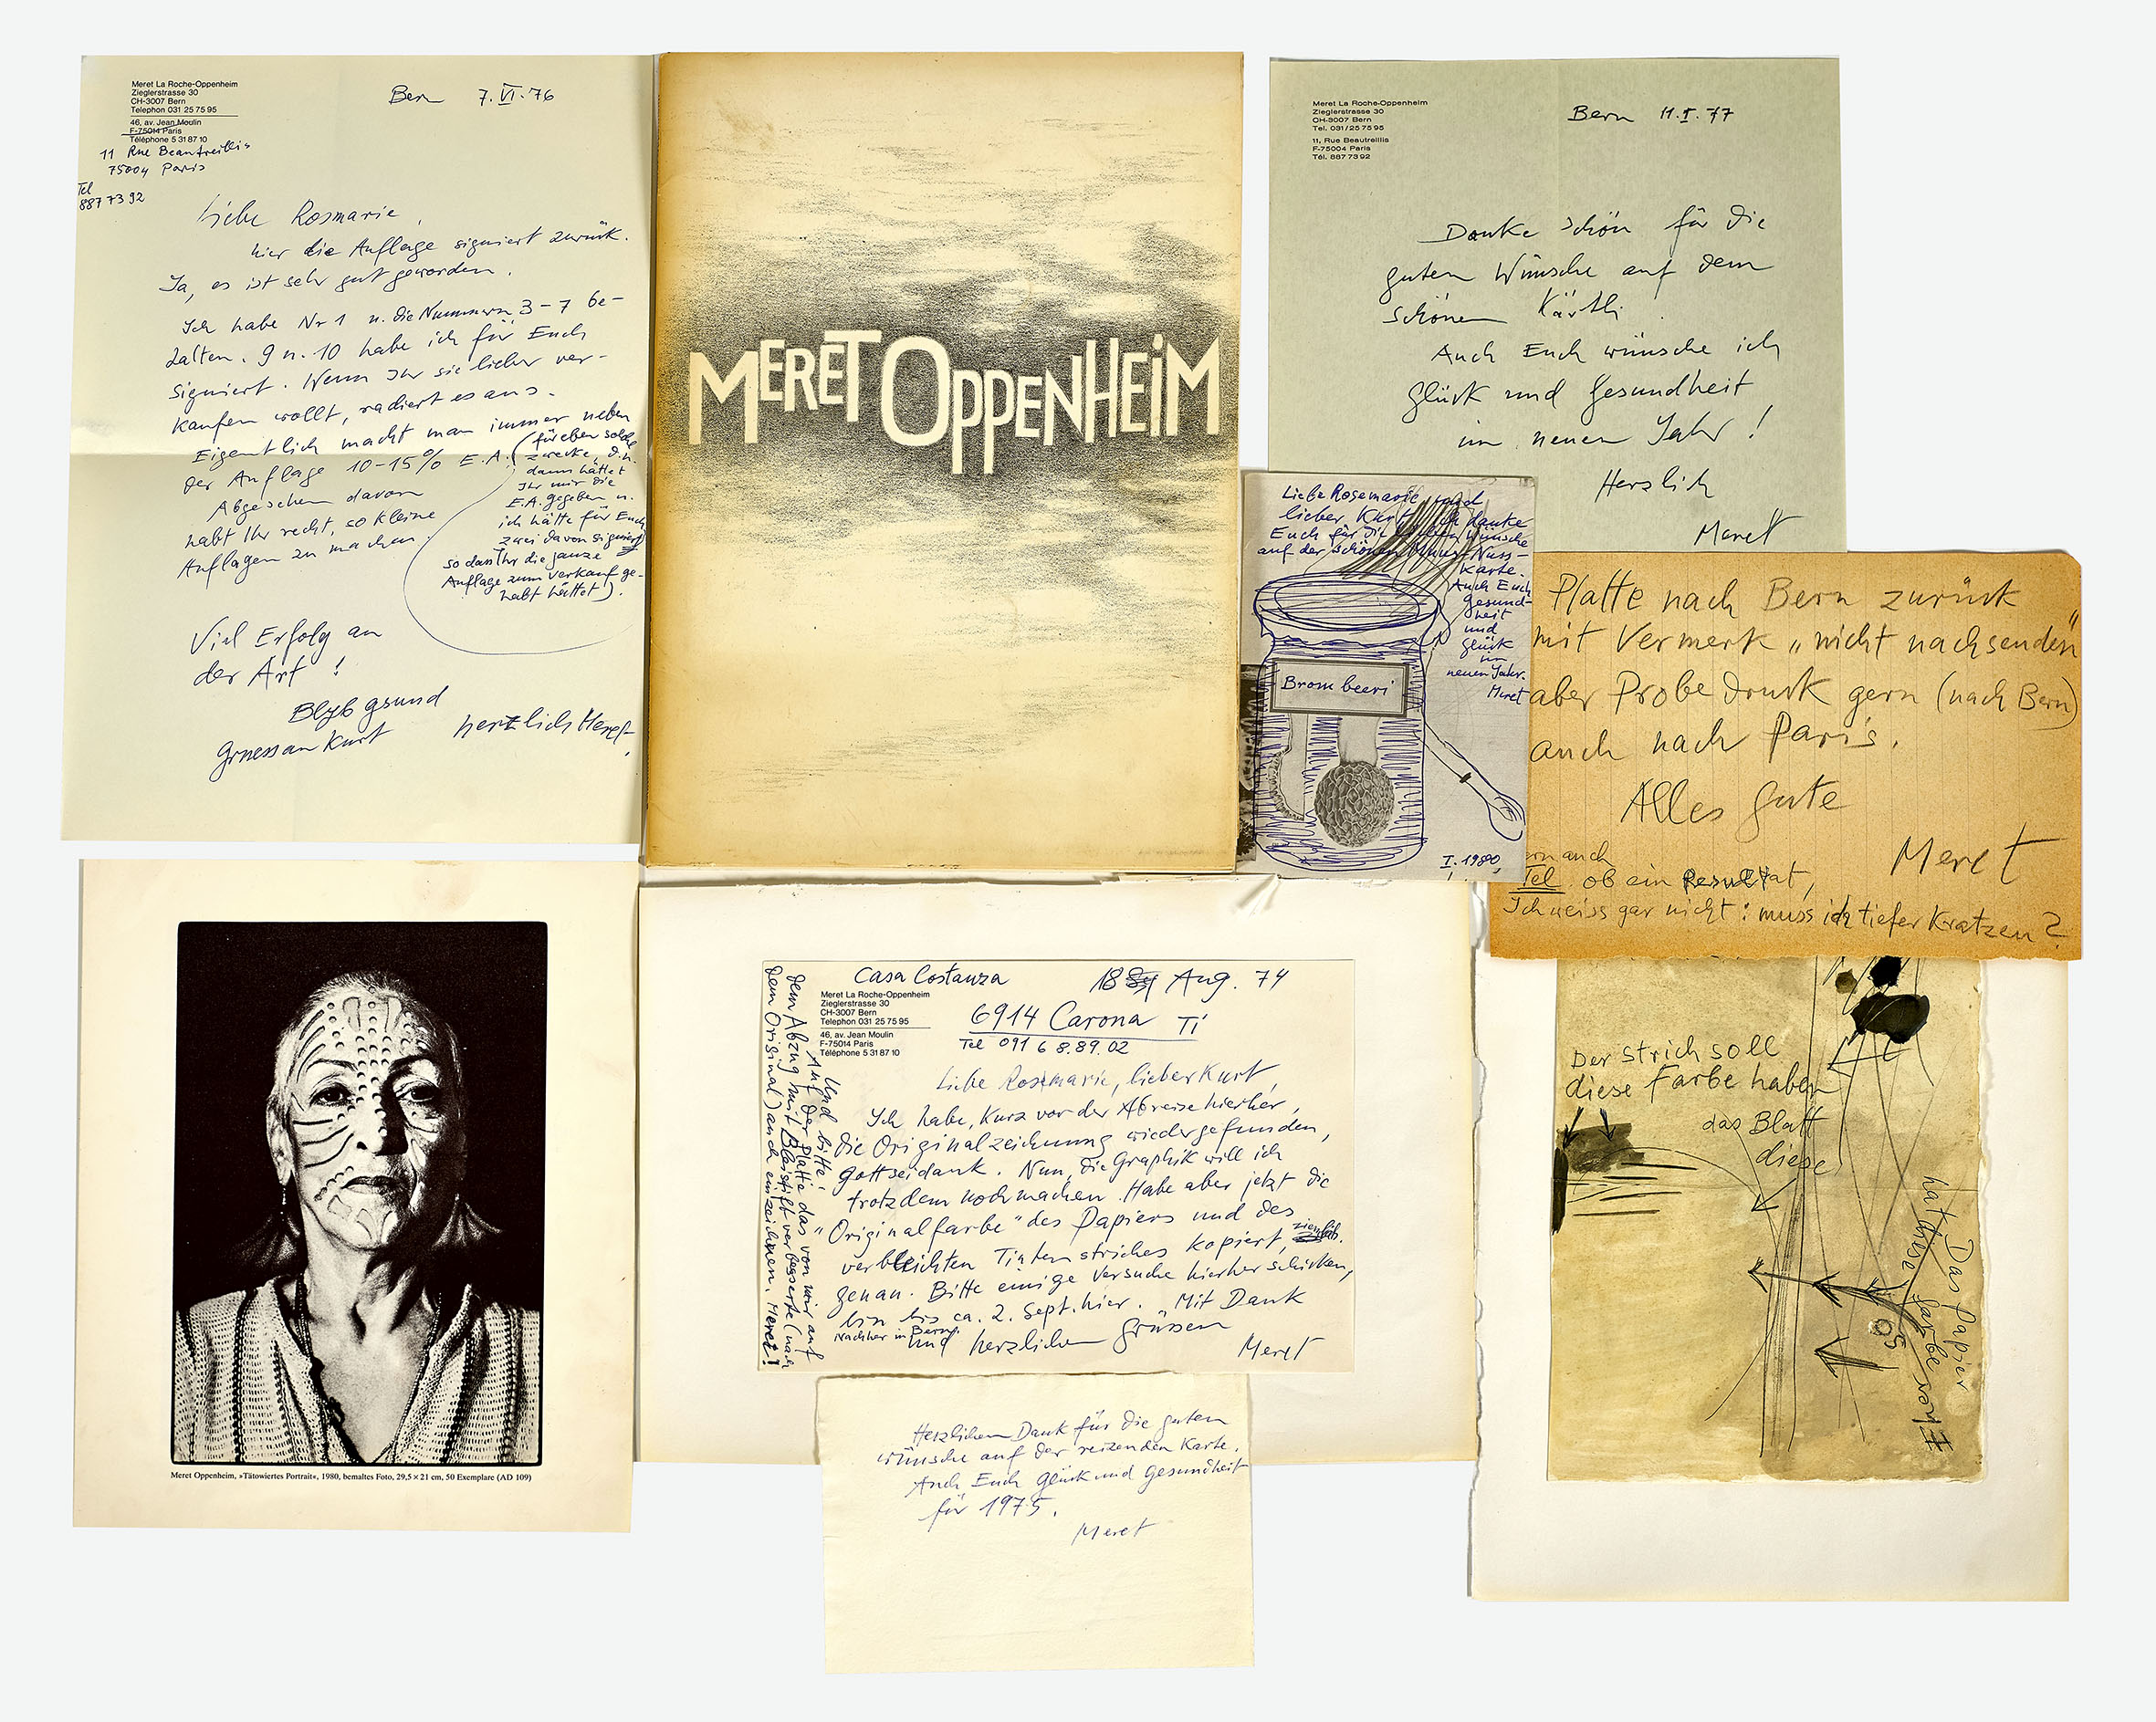 Meret La Roche-Oppenheim
Zieglerstrasse 30
CH-3007 Bern
Telephon 031 25 75 95
46, av. Jean Moulin
F-75014 Paris
Téléphone 5 31 87 10
11 Rue Beautreillis
75004 Paris
Tel
887 73 92
Bern 7.VI.76
Liebe Rosmarie,
hier die Auflage signiert zurück.
Ja, es ist sehr gut geworden.
Ich habe Nr 1 u. die Nummern 3-7 be-
halten. 9 u. 10 habe ich für Euch
signiert. Wenn Ihr sie lieber ver-
kaufen wollt, radiert es aus.
Eigentlich macht man immer neben
der Auflage 10-15% E.A. (für eben solche
zwecke, d.h.
dann hättet
Ihr mir die
E.A. gegeben u.
ich hätte für Euch
zwei davon signiert
so dass Ihr die ganze
Auflage zum Verkauf ge-
habt hättet).
Abgesehen davon
habt Ihr recht, so kleine
Auflagen zu machen.
Viel Erfolg an
der Art!
Blyb gsund
Gruess an Kurt herzlich Meret.
MERET OPPENHEIM
Meret La Roche-Oppenheim
Zieglerstrasse 30
CH-3007 Bern
Tel. 031/25 75 95
11, Rue Beautreillis
F-75004 Paris
Tél. 887 73 92
Bern 11.I.77
Danke schön für die
guten Wünsche auf dem
schönen Kärtli.
Auch Euch wünsche ich
Glück und Gesundheit
im neuen Jahr!
Herzlich
Meret
Liebe Rosemarie und
lieber Kurt, ich danke
Euch für die Wünsche
auf der schönen Nuss-
Karte.
Auch Euch
Gesund-
heit
und
Glück
im
neuen Jahr.
Meret
Brombeeri
I. 1980
Platte nach Bern zurück
mit Vermerk „nicht nachsenden"
aber Probedruck gern (nach Bern)
auch nach Paris.
Alles Gute
Meret
auch
Tel. ob ein Resultat,
Ich weiss gar nicht: muss ich tiefer Kratzen?
Meret Oppenheim, »Tätowiertes Portrait«, 1980, bemaltes Foto, 29,5 × 21 cm, 50 Exemplare (AD 109)
Casa Costanza
18 Aug. 74
Meret La Roche-Oppenheim
Zieglerstrasse 30
CH-3007 Bern
Telephon 031 25 75 95
46, av. Jean Moulin
F-75014 Paris
Téléphone 5 31 87 10
6914 Carona Ti
Tel 091 6 8.89.02
Liebe Rosmarie, lieber Kurt,
Ich habe, kurz vor der Abreise hierher,
die Originalzeichnung wiedergefunden,
gottseidank. Nun, die Graphik will ich
trotzdem noch machen. Habe aber jetzt die
"Originalfarbe" des Papiers und des
verbleichten Tintenstriches kopiert, ziemlich
genau. Bitte einige Versuche hierher schicken,
bin bis ca. 2. Sept. hier. Mit Dank
Nachher in Bern.
und herzlichen Grüssen
Meret
Und bitte:
Auf der Platte das von mir auf
dem Abzug mit Bleistift verbesserte (nach
dem Original) auch einzeichnen. Meret!
Herzlichen Dank für die guten
wünsche auf der reizenden Karte.
Auch Euch Glück und Gesundheit
für 1975.
Meret
Der Strich soll
diese Farbe haben
das Blatt
diese
Das Papier
hat diese Farbe